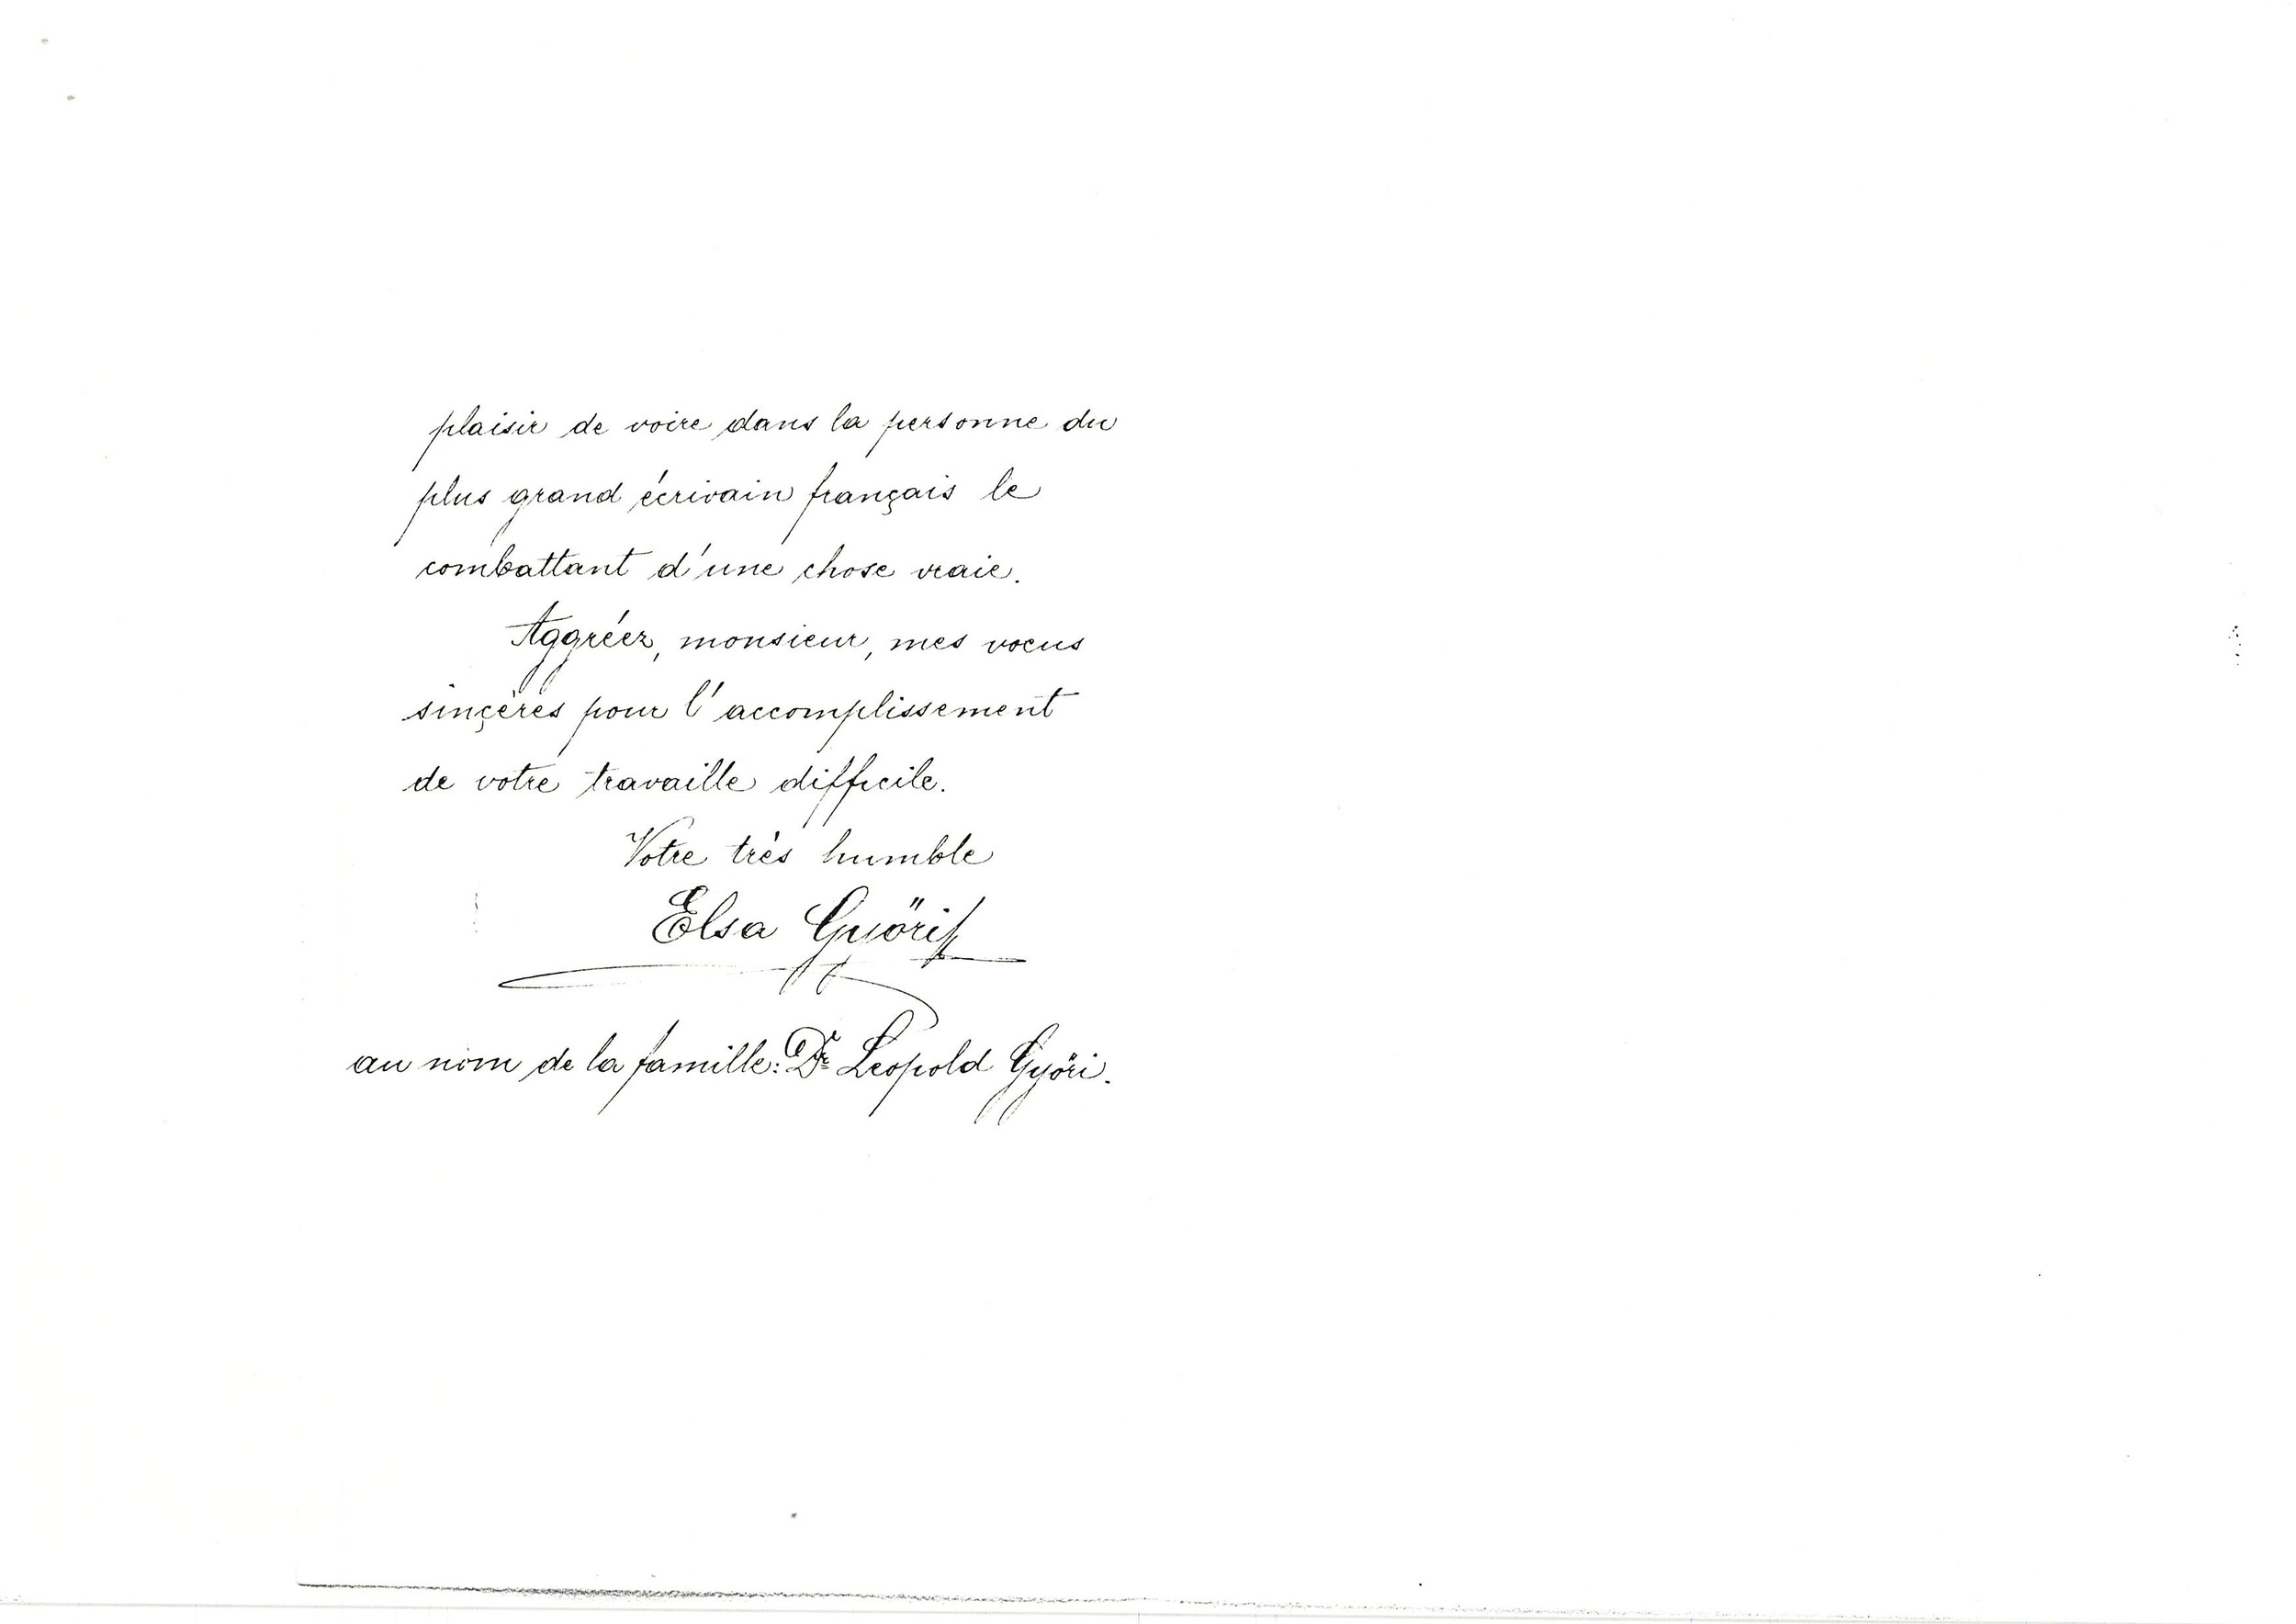 plaisir de voire dans la personne du
plus grand écrivain français le
combattant d'une chose vraie.
Aggréez, monsieur, mes voeus
sinçères pour l'accomplissement
de votre travaille difficile.
Votre très humble
Elsa Győri
au nom de la famille: Dr Leopold Győri.